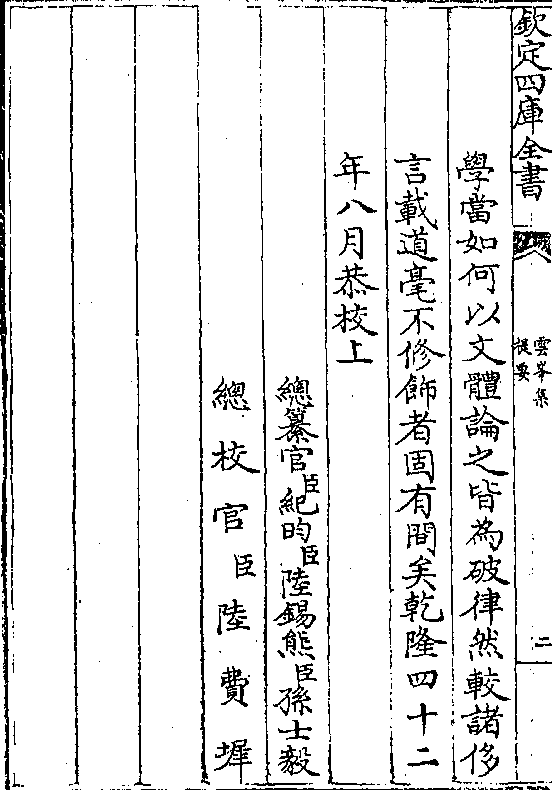 欽定四庫全書
雲峯集
提要
二
學當如何以文體論之皆為破律然較諸侈
言載道毫不修飾者固有間矣乾隆四十二
年八月恭校上
總纂官臣紀昀臣陸錫熊臣孫士毅
總校官臣陸費墀